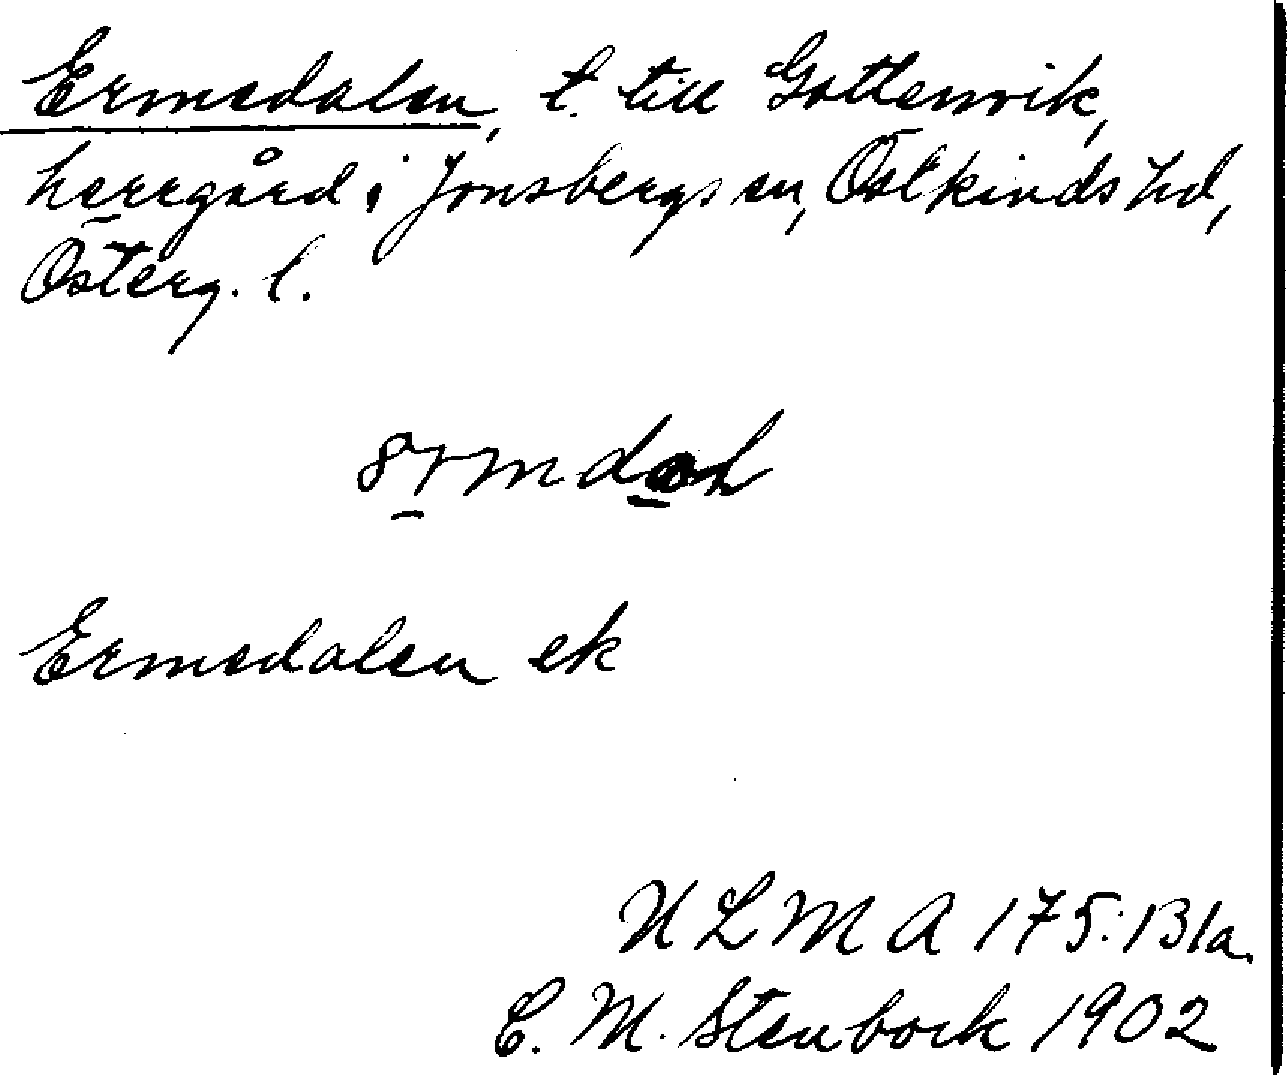 Ermedalen, t. till Gottenvik,
herrgård i Jonsbergs sn, Östkinds hd,
Österg. l.
Ermedalen ek
ULMA 175:B1a.
C. M. Stenbock 1902